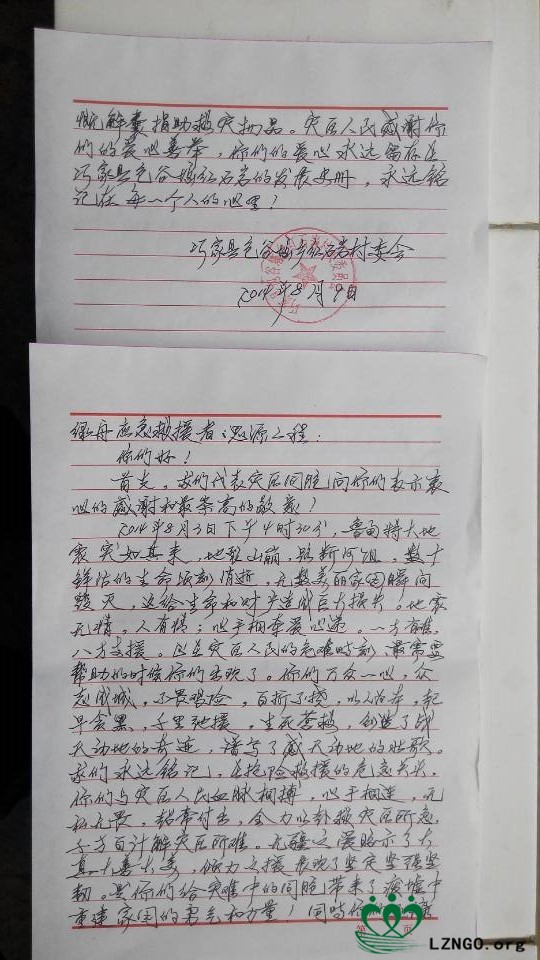 绿舟应急救援者、思源工程：
你们好！
首先，我们代表灾区同胞向你们表示衷
心的感谢和最崇高的敬意！
2014年8月3日下午4时30分，鲁甸特大地
震突如其来，地裂山崩，路断河阻，数十
鲜活的生命顷刻消逝，无数美丽家园瞬间
毁灭，这给生命和财产造成巨大损失。地震
无情，人有情；心手相牵爱心递。一方有难，
八方支援。正在灾区人民的危难时刻，最需要
帮助的时候你们出现了。你们万众一心，众
志成城，不畏艰险，百折不挠，以人为本，起
早贪黑，千里驰援，生死营救，创造了战
天动地的奇迹，谱写了感天动地的壮歌。
我们永远铭记，在抢险救援的危急关头，
你们与灾区人民血脉相搏，心手相连，无
私无畏，轻常付出，全力以赴救灾区所急，
千方百计解灾区所难。无疆之爱昭示了大
真大善大美，倾力支援展现了坚实坚强坚
韧。是你们给灾难中的同胞带来了废墟中
重建家园的勇气和力量！同时你们
慨解囊捐助救灾物品。灾区人民感谢你
们的爱心善举，你们的爱心永远留存在
巧家县包谷垴红石岩的发展史册，永远铭
记在每一个人的心里！
巧家县包谷垴乡红石岩村委会
2014年8月9日
LZNGO.org